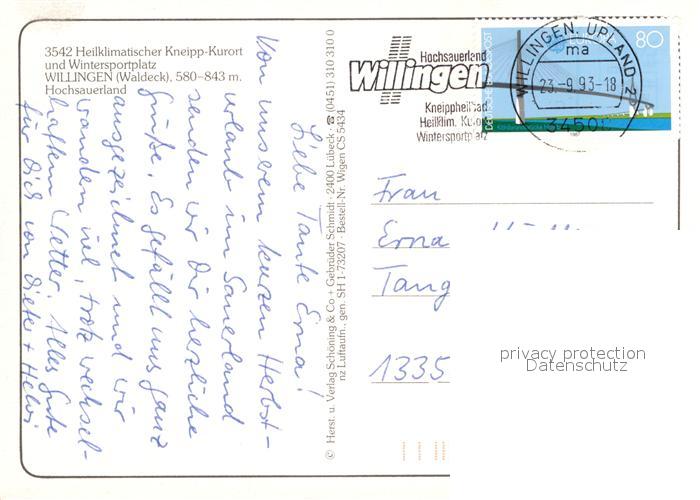 3542 Heilklimatischer Kneipp-Kurort
und Wintersportplatz
WILLINGEN (Waldeck), 580–843 m.
Hochsauerland
Liebe Tante Erna!
Von unserem kurzen Herbst-
urlaub im Sauerland
senden wir Dir herzliche
Grüße. Es gefällt uns ganz
ausgezeichnet und wir
wandern viel, trotz wechsel-
haftem Wetter. Alles Gute
für Dich von Dieter + Helwi
© Herst. u. Verlag Schöning & Co + Gebrüder Schmidt · 2400 Lübeck · ☎ (0451) 310 310 0
nz Luftaufn., gen. SH 1-73207 · Bestell-Nr. Wigen CS 5434
Hochsauerland
Willingen
Kneippheilbad
Heilklim. Kurort
Wintersportplatz
WILLINGEN, UPLAND 2
ma
23.-9.93-18
3450
DEUTSCHE BUNDESPOST
80
Frau
Erna
Tang
1335
privacy protection
Datenschutz